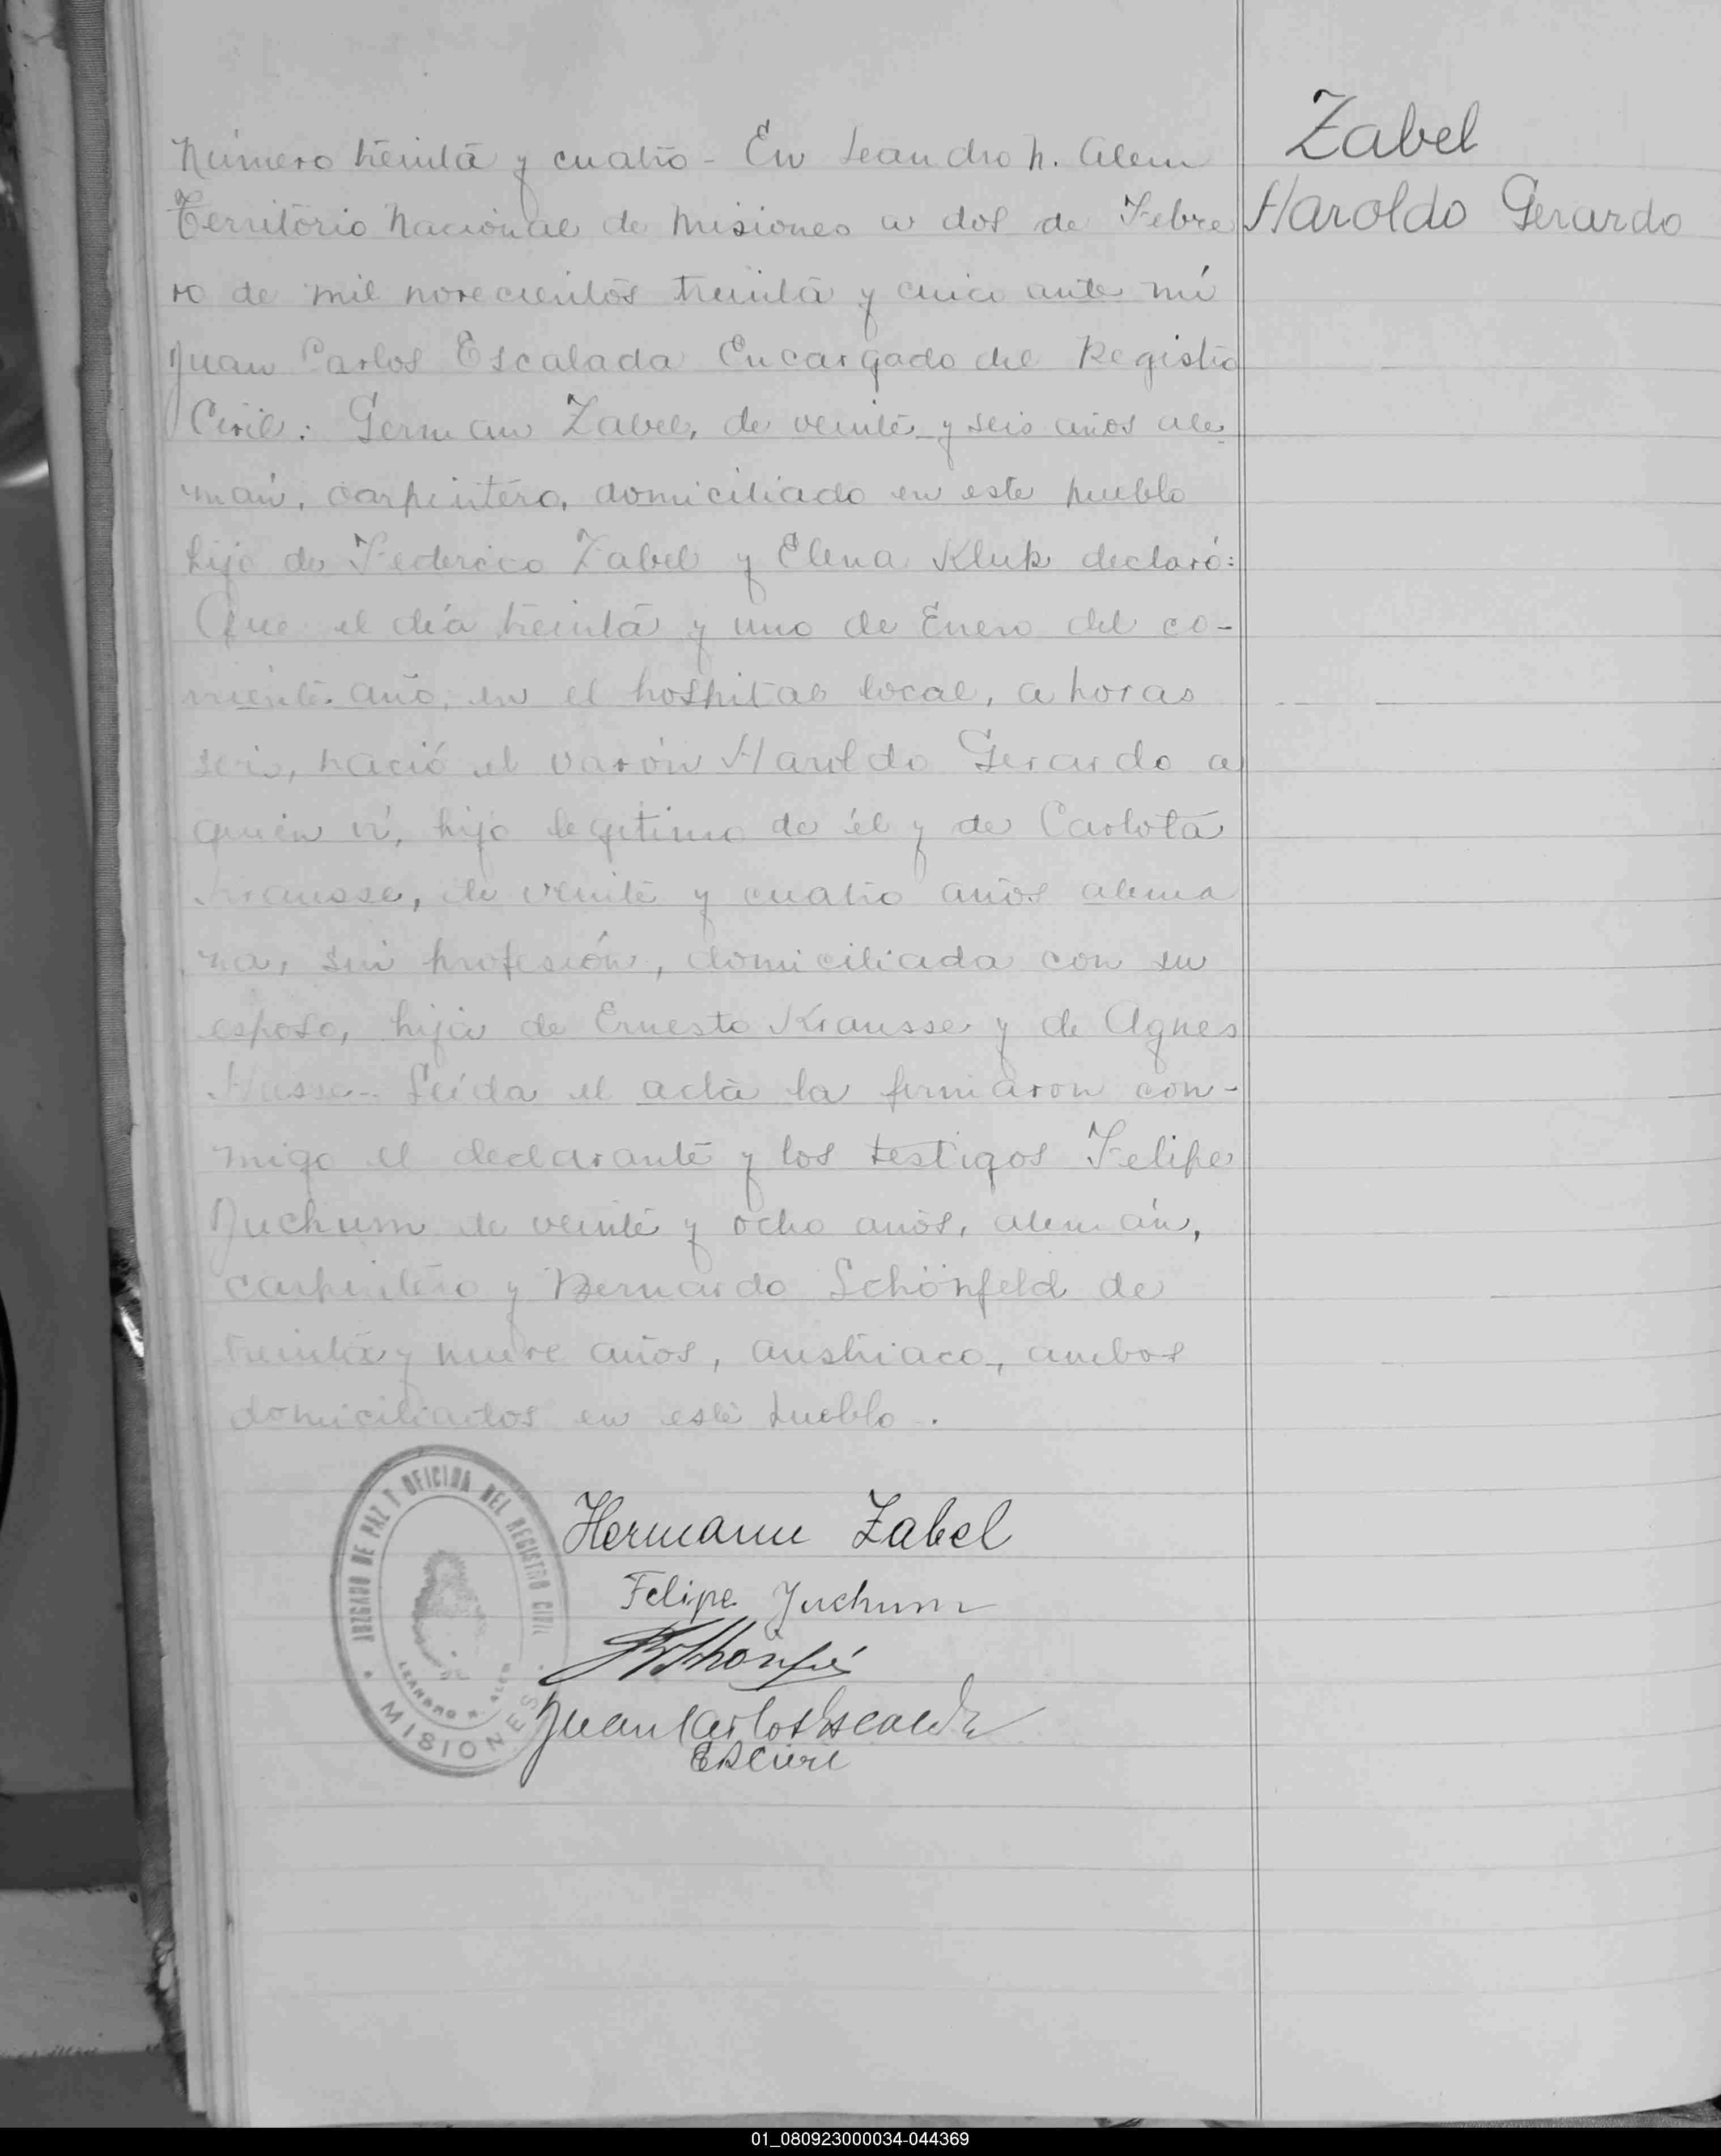 Zabel
Haroldo Gerardo
Número treinta y cuatro - En Leandro N. Alem
Territorio Nacional de Misiones a dos de Febre
ro de mil novecientos treinta y cinco ante mí
Juan Carlos Escalada Encargado del Registro
Civil: German Zabel, de veinte y seis años ale
mán, carpintero, domiciliado en este pueblo
hijo de Federico Zabel y Elena Kluk declaró:
Que el día treinta y uno de Enero del co-
rriente año, en el hospital local, a horas
seis, nació el varón Haroldo Gerardo a
quien ví, hijo legitimo de él y de Carlota
Krausse, de veinte y cuatro años alema
na, sin profesión, domiciliada con su
esposo, hija de Ernesto Krausse y de Agnes
Leída el acta la firmaron con-
migo el declarante y los testigos Felipe
Juchum de veinte y ocho años, alemán,
carpintero y Bernardo Schönfeld de
treinta y nueve años, austriaco, ambos
domiciliados en este pueblo.
JUZGADO DE PAZ Y OFICINA DEL REGISTRO CIVIL
LEANDRO N. ALEM
MISIONES
Hermann Zabel
Felipe Juchum
Juan Carlos Escalada
01_080923000034-044369